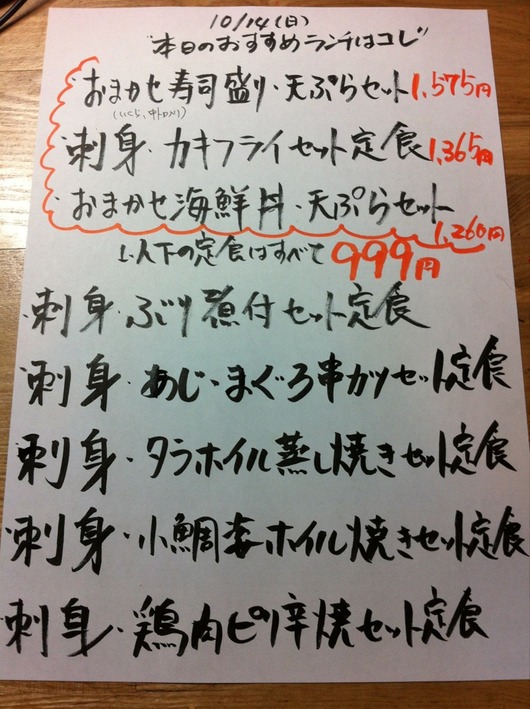 10/14(日)
"本日のおすすめランチはコレ"
おまかせ寿司盛り・天ぷらセット 1,575円
(いくら、中トロ入り)
刺身・カキフライセット定食 1,365円
おまかせ海鮮丼・天ぷらセット
1,260円
以下の定食はすべて 999円
・刺身・ぶり煮付セット定食
・刺身・あじ・まぐろ串カツセット定食
・刺身・タラホイル蒸し焼きセット定食
・刺身・小鯛姿ホイル焼きセット定食
・刺身・鶏肉ピリ辛焼セット定食